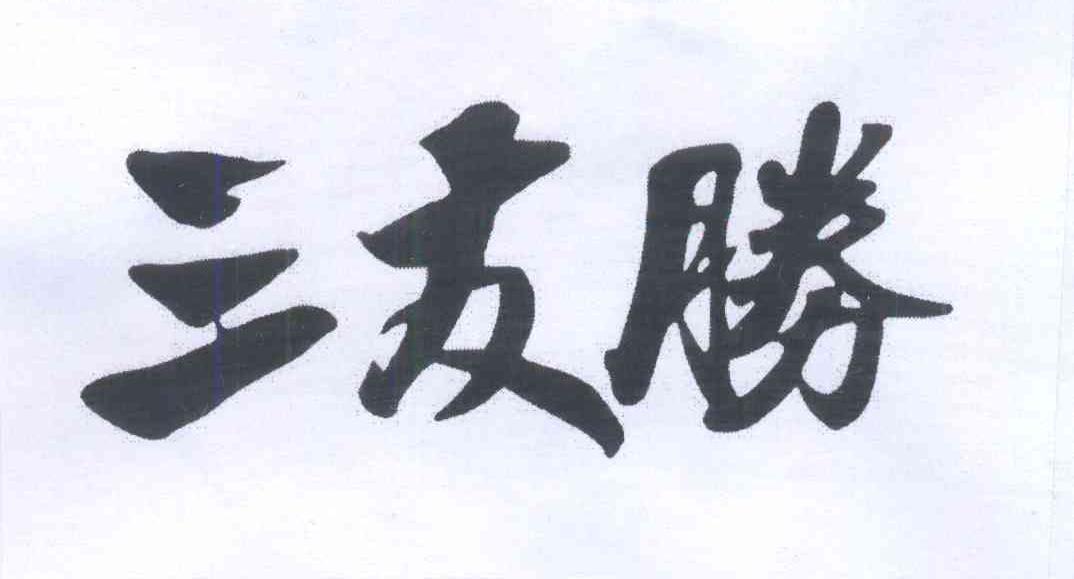 三友勝